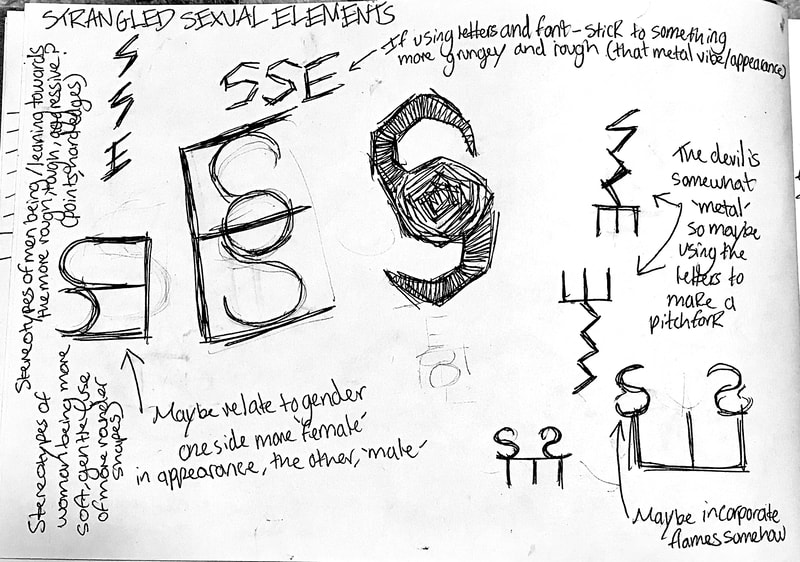 STRANGLED SEXUAL ELEMENTS
If using letters and font - stick to something
more grungey and rough (that metal vibe/appearance)
SSE
S
S
E
Stereotypes of men being/leaning towards
the more rough, tough, aggressive?
(points, hard edges)
Stereotypes of
woman being more
soft, gentle (use
of more rounder
shapes)
The devil is
somewhat
'metal'
so maybe
using the
letters to
make a
pitchfork
Maybe relate to gender
one side more 'female'
in appearance, the other, 'male'
Maybe incorporate
flames somehow